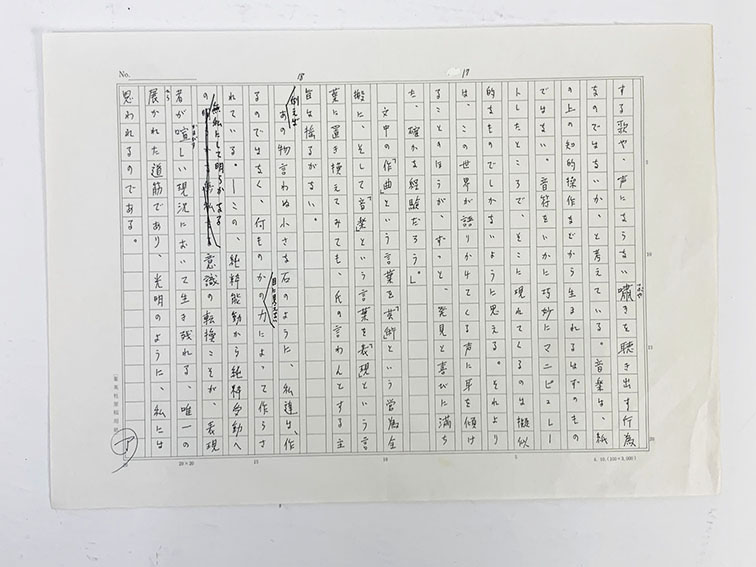 No.
18
17
する歌や、声にならない囁きを聴き出す行為
ささや
なのではないか、と考えている。音楽は、紙
の上の知的操作などから生まれるはずのもの
ではない。音符をいかに巧妙にマニピュレー
トしたところで、そこに現れてくるのは擬似
的なものでしかないように思える。それより
は、この世界が語りかけてくる声に耳を傾け
ることのほうが、ずっと、発見と喜びに満ち
た、確かな経験だろう」。
文中の「作曲」という言葉を「芸術」という営為全
般に、そして「音楽」という言葉を「表現」という言
葉に置き換えてみても、氏の言わんとする主
旨は揺るがない。
例えば
あの物言わぬ小さな石のように、私達は、「作
るのではなく、何ものかの力によって作らさ
目に見えない
れている。」―この、純粋能動から純粋受動へ
の
無私にして明らかなる
意識の転換こそが、表現
者が喧しい現況において生き残れる、唯一の
かまびす
展かれた道筋であり、光明のように、私には
ひら
思われるのである。
ア
5
10
15
20
20×20
A. 10. (100×3,000)